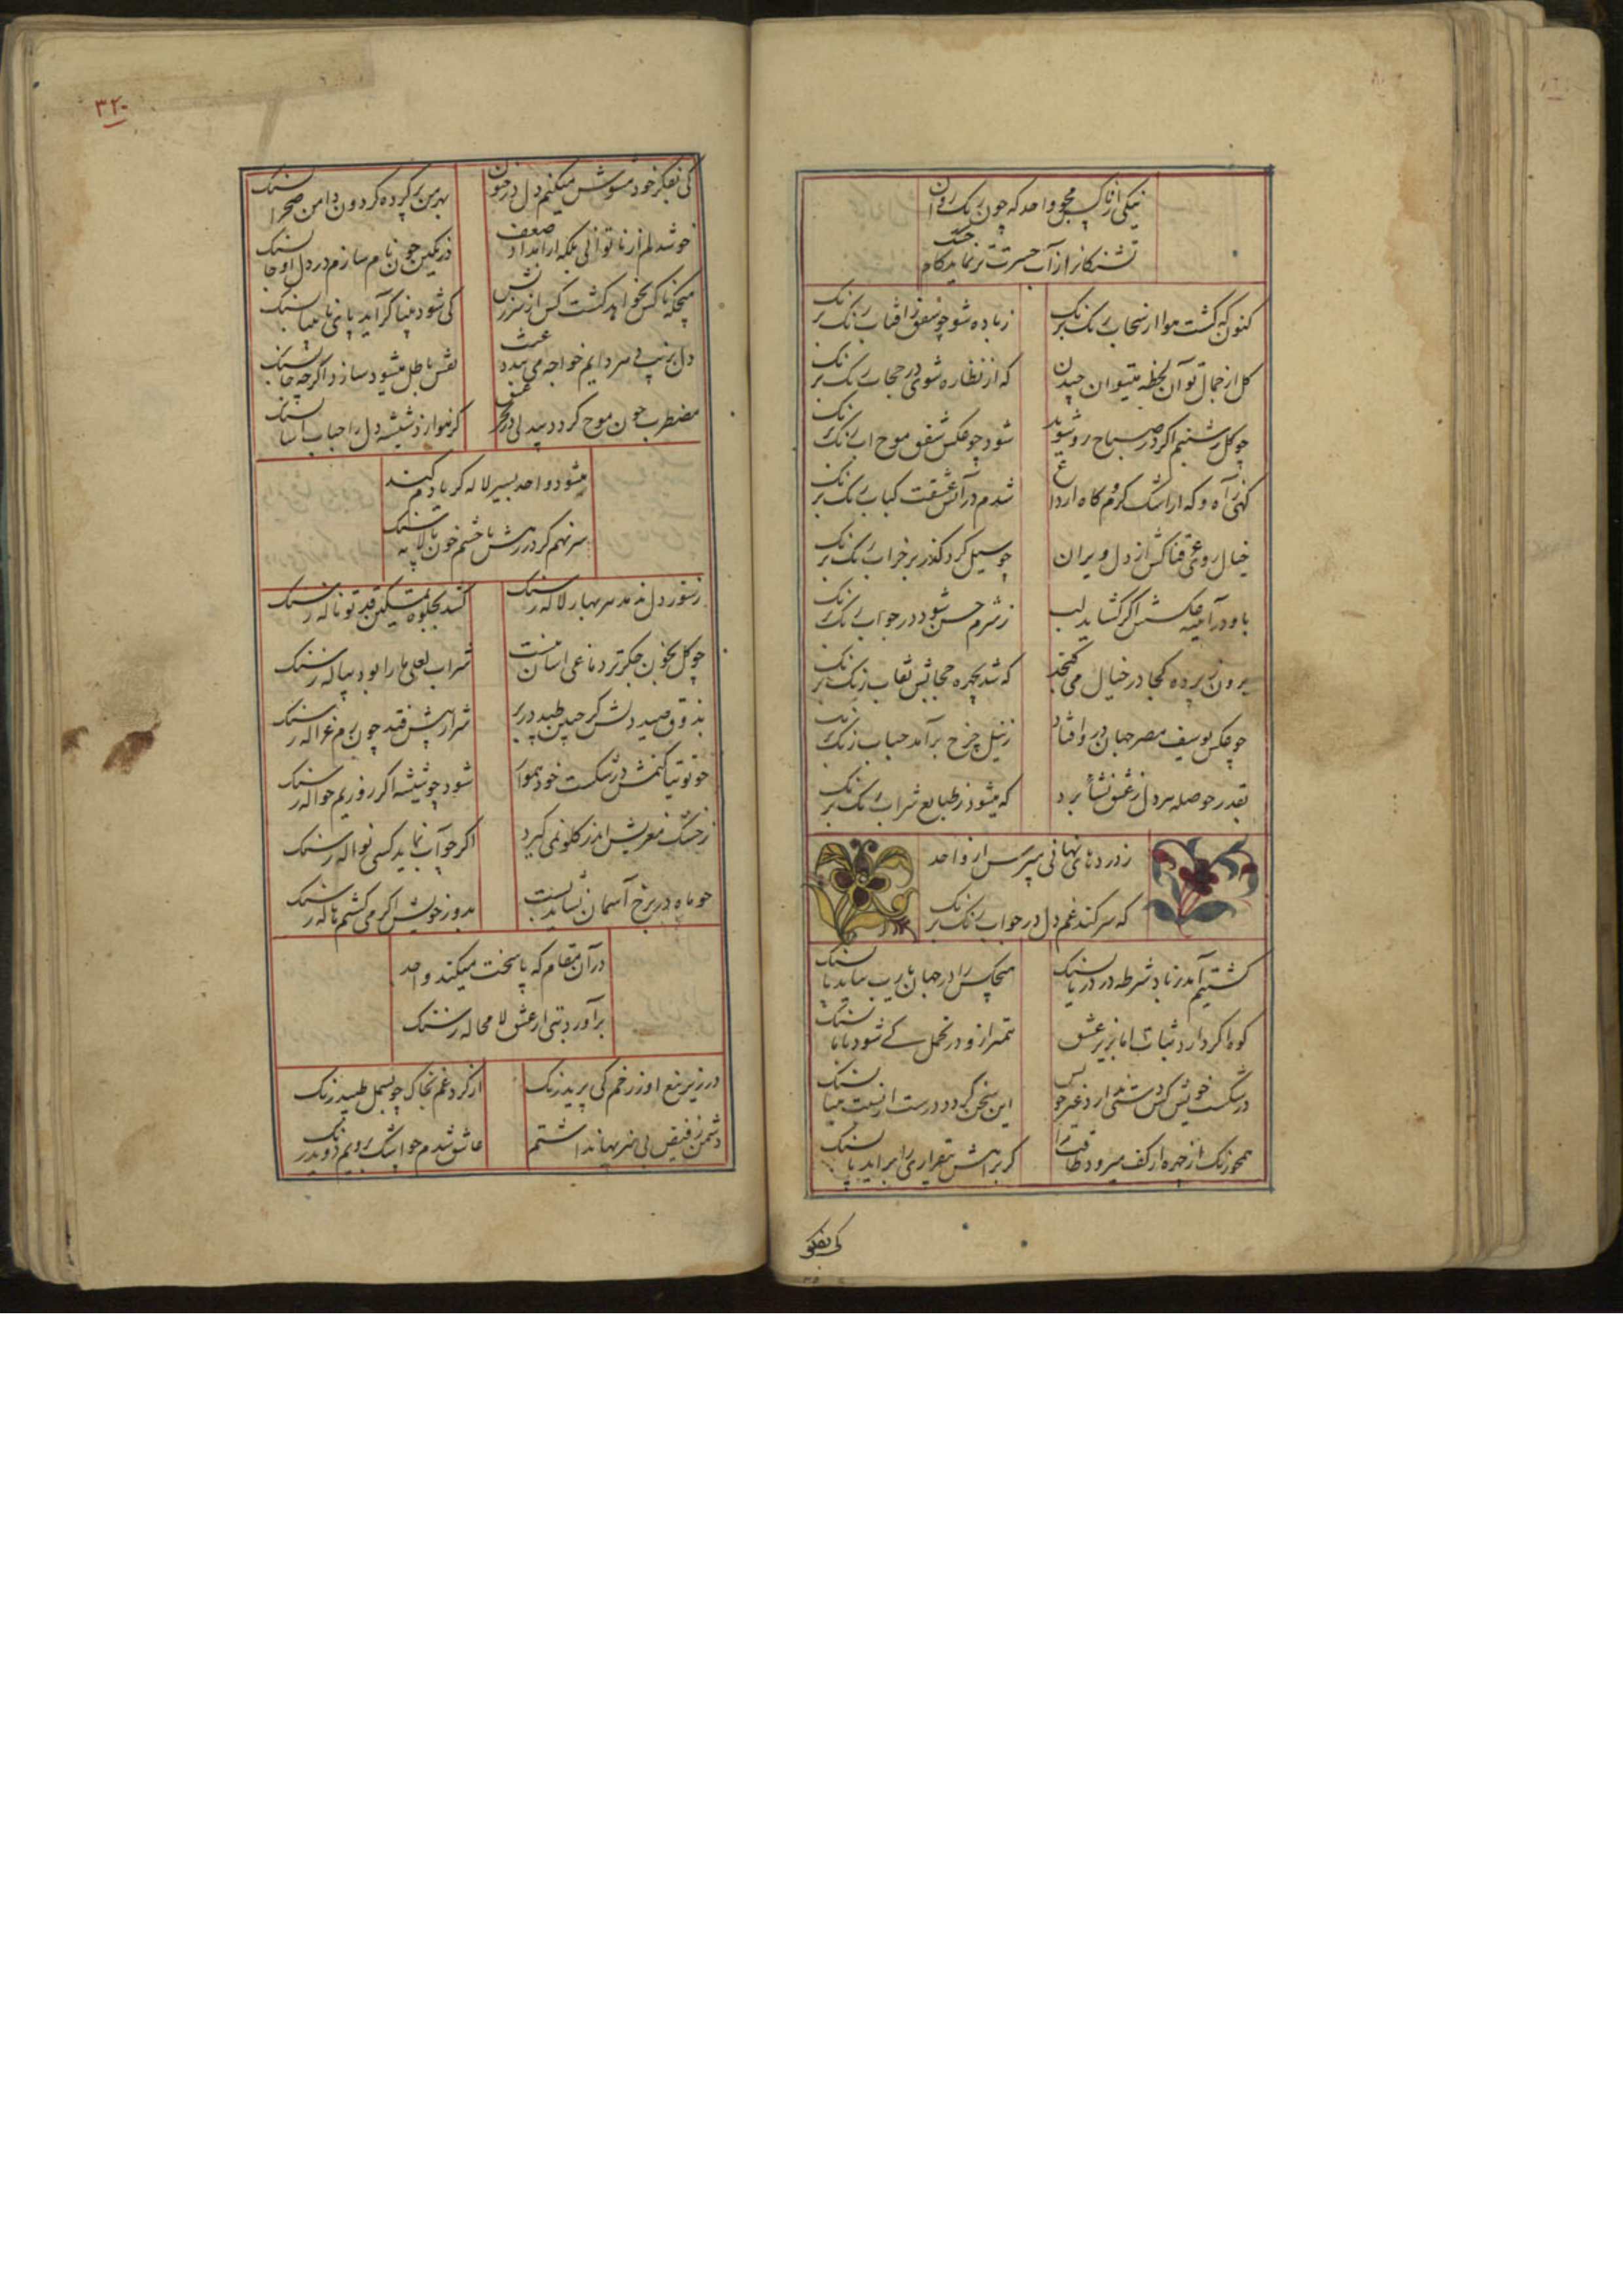 نیکی از ناکس مجو واحد که چون ریک روان
تشنکانرا از آب حسرت تر نماید کام خشک
کنون که کشت هوا از سحاب رنک برنک
ز باده شو چو شفق ز آفتاب رنک برنک
کل از جمال تو آن لحظه میتوان چیدن
که از نظاره شوی در حجاب رنک برنک
چو کل بشبنم اکر در صباح رو شوید
شود چو عکس شفق موج آب رنک برنک
کهی ز آه و که از اشک کرم و کاه از داغ
شدم در آتش عشقت کباب رنک برنک
خیال روی عرقناکش از دل ویران
چو سیل کرد کذر بر خراب رنک برنک
باو در آینه عکسش اکر کشاید لب
ز شرم حسن شود در جواب رنک برنک
برون ز پرده کجا در خیال می کنجد
که شد بچهره حجابش نقاب رنک برنک
چو عکس یوسف مصر جهان درو افتاد
ز نیل چرخ برآمد حباب رنک برنک
بقدر حوصله هر دل ز عشق نشأ برد
که میشود ز طبایع شراب رنک برنک
ز دردهای نهانی مپرس از واحد
که سر کند غم دل در جواب رنک برنک
کشتیم آمد ز باد شرطه در دریا بسنک
هیچکس را در جهان یارب نیاید پا بسنک
کوه اکر دارد ثبات اما بزیر عشق
در ترازو در تحمل کی شود با ما بسنک
در شکست خویش کس دستی ندارد غیر خویش
این سخن کردد درست از نسبت مینا بسنک
همچو رنک از چهره از کف میرود طاقت مرا
کر براهش بیقراری را برآید پا بسنک
کی بفکر
۳۲۰
کی بفکر خود مشوش میکنم دل در جنون
بهر من پر کرده کردون دامن صحرا سنک
خوش دلم از ناتوانی بلکه از امداد ضعف
در نکین چون نام سازم در دل او جا سنک
هیچکه ناکس نخواهد کشت کس از سرزنش
کی شود بینا کر آید پای نابینا بسنک
دل بزینت سر دایم خواجه می بندد عبث
نقش باطل میشود سازد اکرچه جا بسنک
مضطرب چون موج کردد بیدلی در بحر عشق
کر نموار ز شیشه دل را حباب آسا بسنک
میشود واحد بسیر لاله کر یادم کنند
سر نهم کر در رهش با چشم خون پالا بسنک
ز شور دل ندمد سر بهار لاله ز سنک
کشد بجلوه تمکین قد تو ناله ز سنک
چو کل بخون جکر تر دماغی آسان نیست
شراب لعلی ما را بود پیاله ز سنک
بذوق صید دلش کر چنین طپد در بر
شرار پیش فتد چون برم غزاله ز سنک
چو توتیا کنمش در شکست خود هموار
شود چو شیشه اکر روزیم حواله ز سنک
ز خشک مغزیش اندر کلو نمی کیرد
اکر چو آب نماید کسی نواله ز سنک
چو ماه در برخ آسمان نشانیدست
بدور خویش اکر می کشم هاله ز سنک
در آن مقام که پا سخت میکند واحد
برآورد بتی از عشق لامحاله ز سنک
در زیر تیغ او ز رخم کی پرید رنک
از کرد غم بخاک چو بسمل طپید رنک
دشمن ز فیض بی هنریها نداشتم
عاشق شدم چو اشک برویم دوید رنک